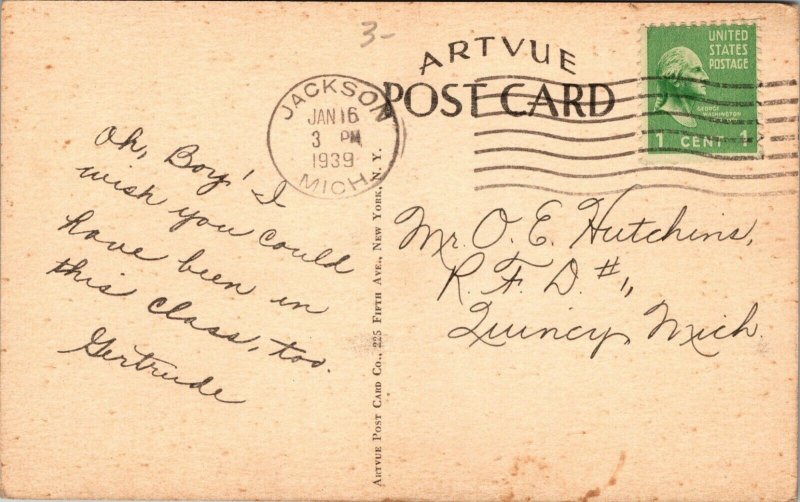 3-
ARTVUE
POST CARD
UNITED
STATES
POSTAGE
GEORGE
WASHINGTON
1 CENT 1
JACKSON
JAN 16
3 PM
1939
MICH.
Oh, Boy! I
wish you could
have been in
this class, too.
Gertrude
ARTVUE POST CARD CO., 225 FIFTH AVE., NEW YORK, N. Y.
Mr. O. E. Hutchins,
R. F. D. #1,
Quincy, Mich.